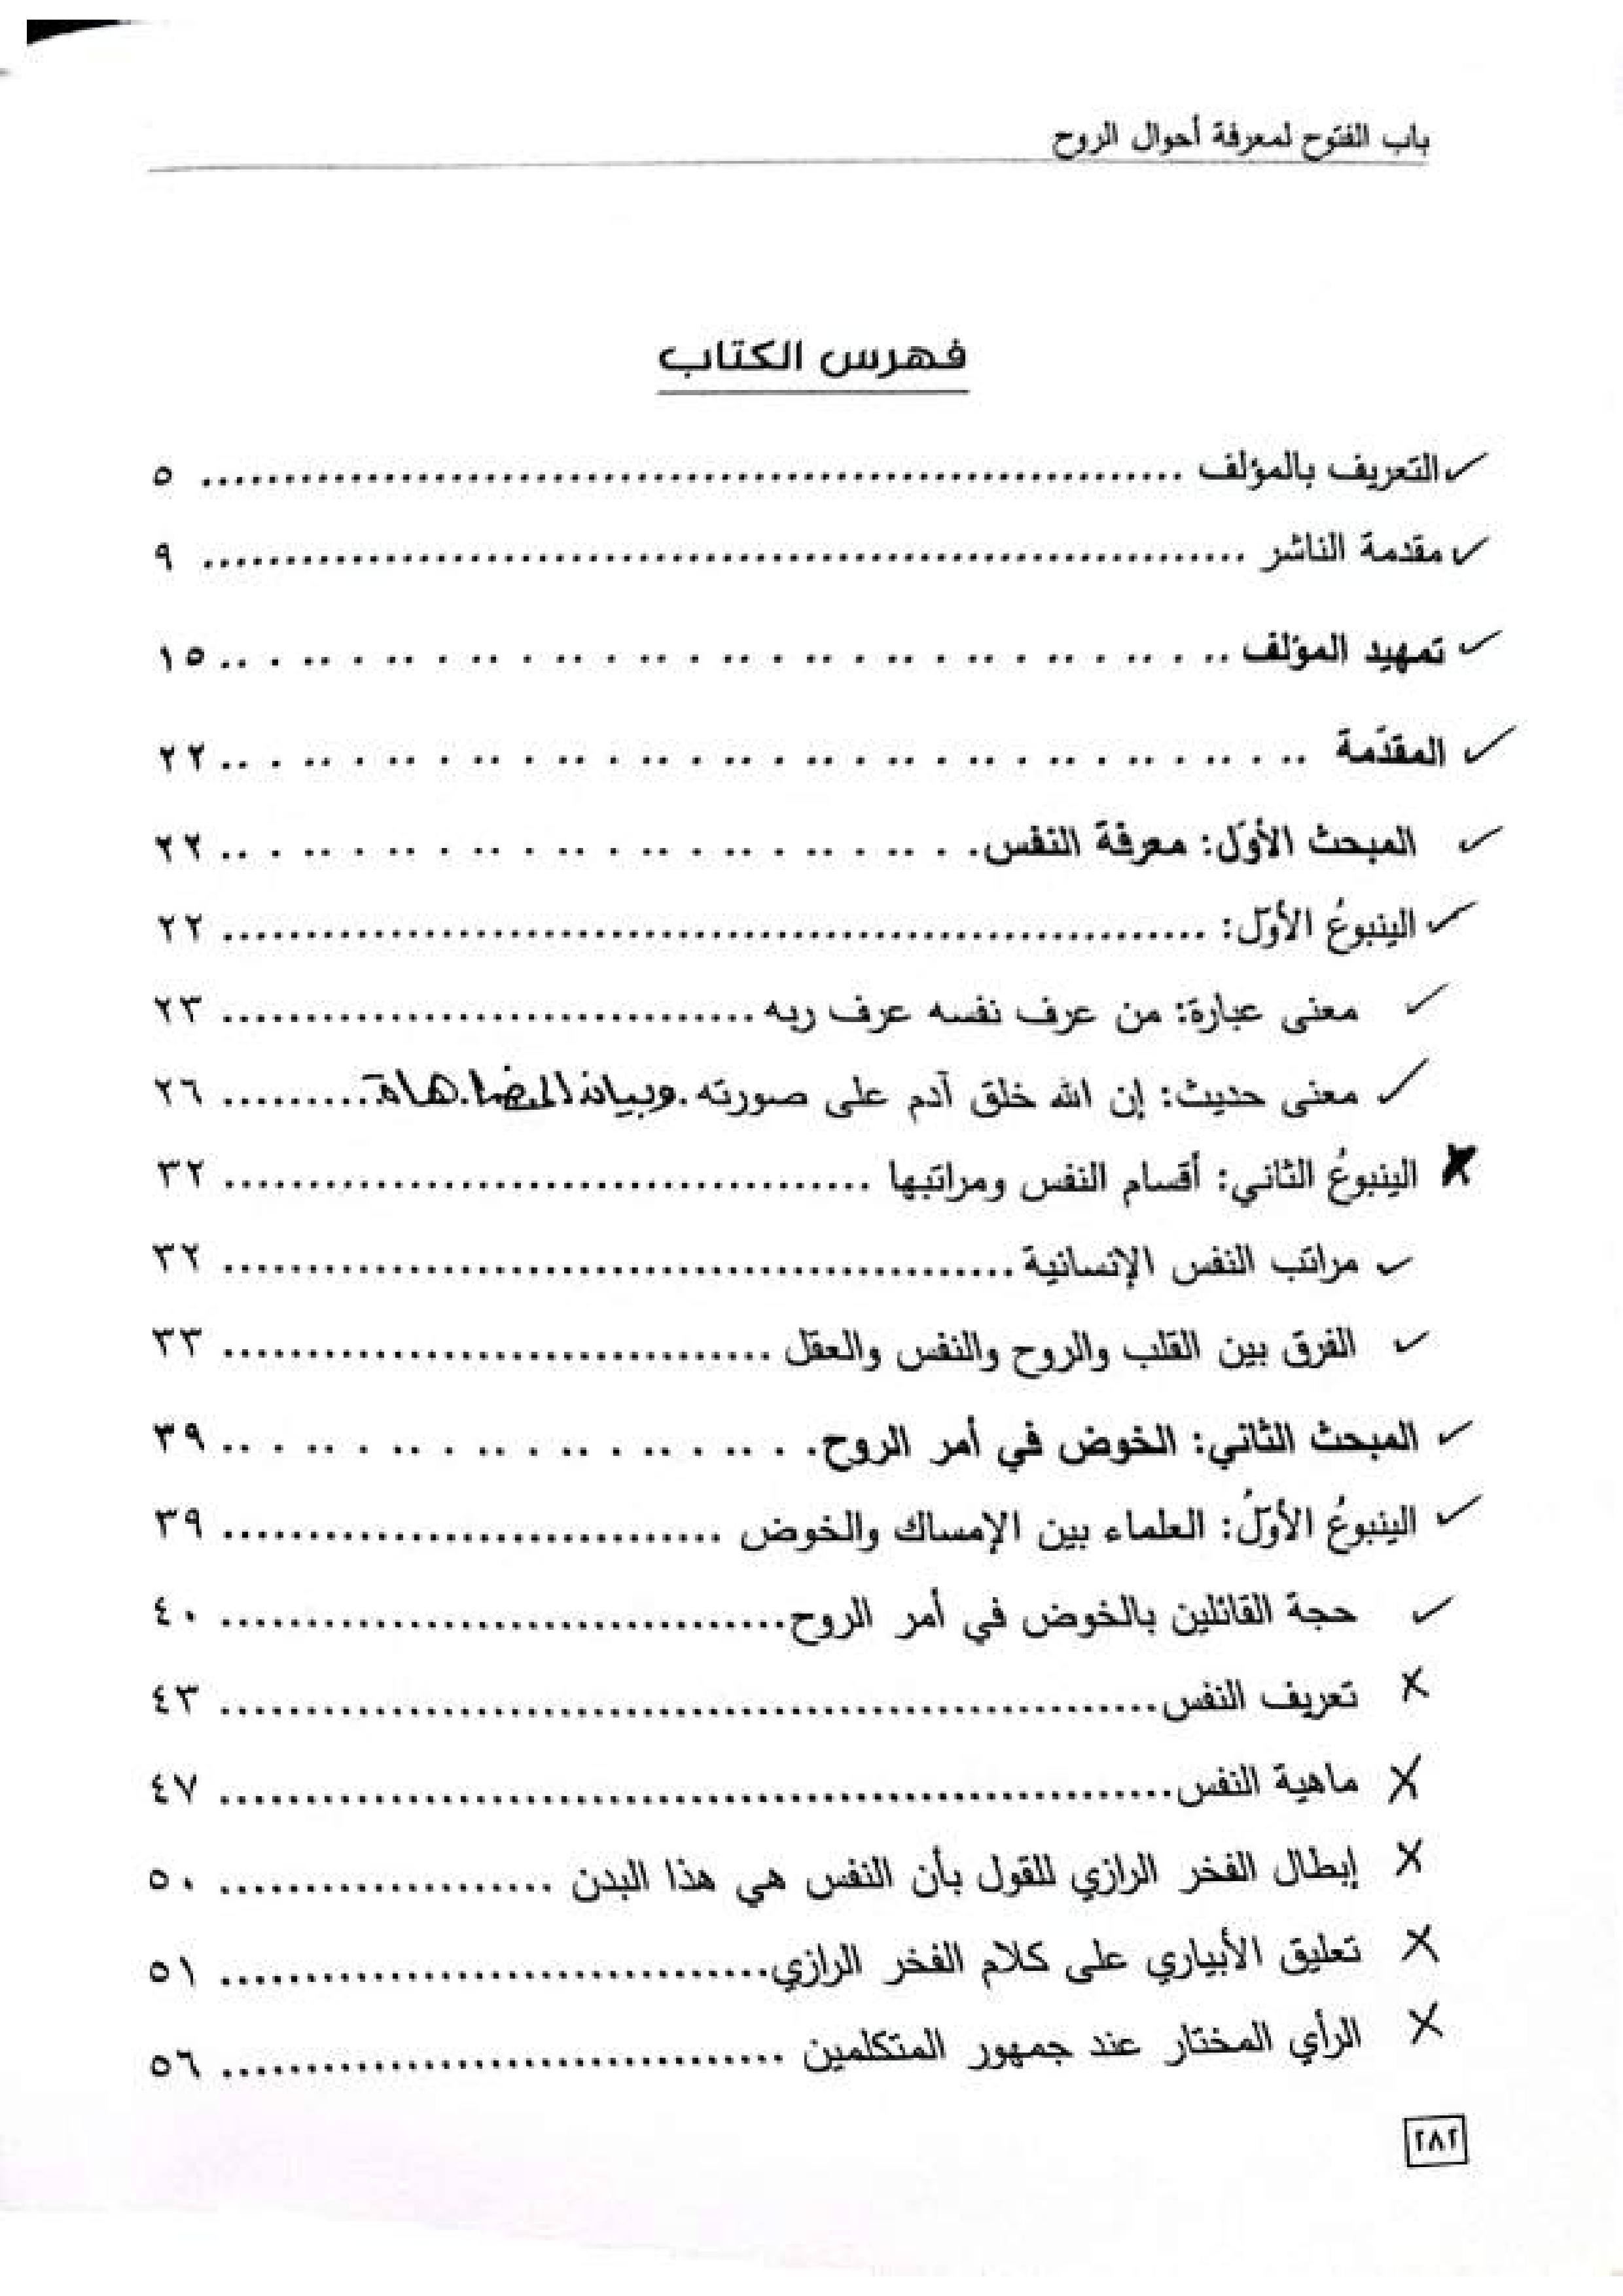 باب الفتوح لمعرفة أحوال الروح
فهرس الكتاب
✓ التعريف بالمؤلف ........................ ٥
✓ مقدمة الناشر ........................ ٩
✓ تمهيد المؤلف ........................ ١٥
✓ المقدّمة ........................ ٢٢
✓ المبحث الأوّل: معرفة النفس ........................ ٢٢
✓ الينبوعُ الأوّل: ........................ ٢٢
✓ معنى عبارة: من عرف نفسه عرف ربه ........................ ٢٣
✓ معنى حديث: إن الله خلق آدم على صورته وبيان المضاهاة ......... ٢٦
✗ الينبوعُ الثاني: أقسام النفس ومراتبها ........................ ٣٢
✓ مراتب النفس الإنسانية ........................ ٣٢
✓ الفرق بين القلب والروح والنفس والعقل ........................ ٣٣
✓ المبحث الثاني: الخوض في أمر الروح ........................ ٣٩
✓ الينبوعُ الأوّلُ: العلماء بين الإمساك والخوض ........................ ٣٩
✓ حجة القائلين بالخوض في أمر الروح ........................ ٤٠
✗ تعريف النفس ........................ ٤٣
✗ ماهية النفس ........................ ٤٧
✗ إبطال الفخر الرازي للقول بأن النفس هي هذا البدن .................... ٥٠
✗ تعليق الأبياري على كلام الفخر الرازي ........................ ٥١
✗ الرأي المختار عند جمهور المتكلمين ........................ ٥٦
٢٨٢